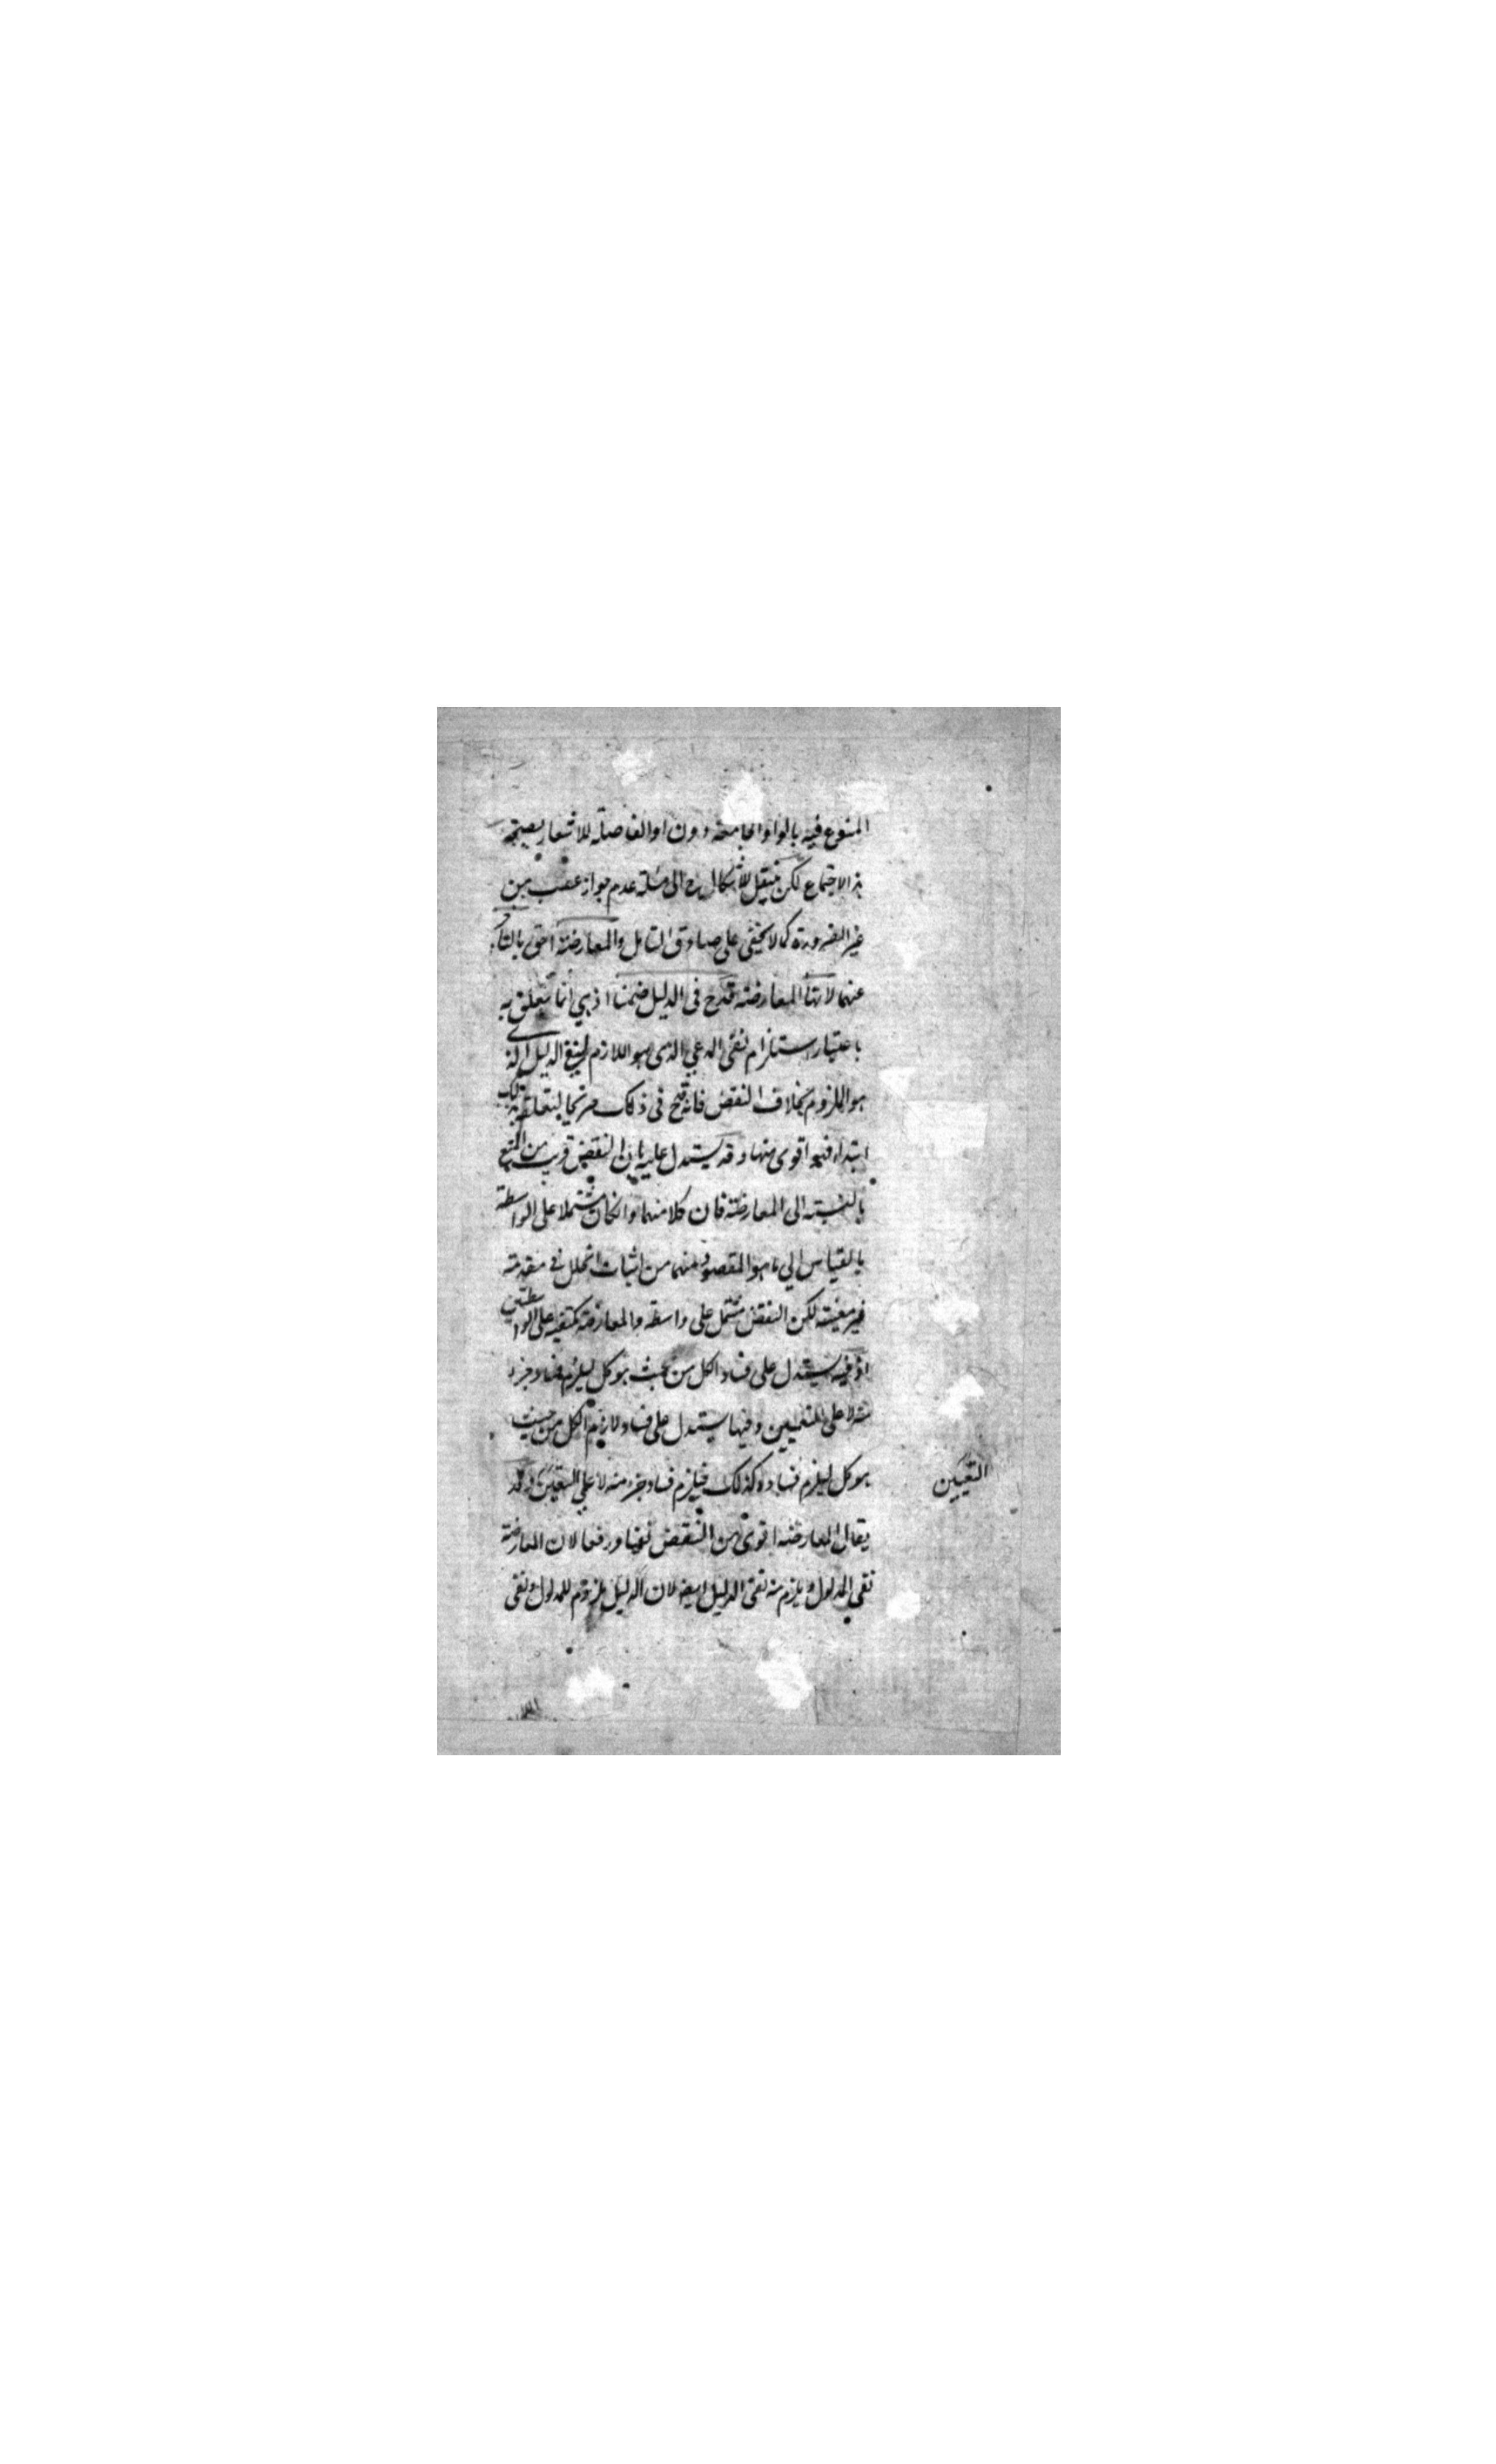 الممنوع فيه بالواو الجامعة دون او الفاصلة للاشعار بصحة
هذا الاجتماع لكن ينتقل الاشكال ح الى مسئلة عدم جواز غصب من
غير الضرورة كما لا يخفى على صادق التامل والمعارضة احق بالتاخر
عنهما لانها المعارضة قدح فى الدليل ضمنا اذ هي انما تتعلق به
باعتبار استلزام نفى المدعي الذى هو اللازم لنفى الدليل الذى
هو الملزوم بخلاف النقض فانه قدح فى ذلك صريحا لتعلقه بذلك
ابتداء فهو اقوى منها و قد يستدل عليه بان النقض قريب من المنع
بالنسبة الى المعارضة فان كلا منهما وانكان مشتملا على الواسطة
بالقياس الي ما هو المقصود منهما من اثبات الخلل فى مقدمة
غير معينة لكن النقض مشتمل على واسطة والمعارضة مكتفية على الواسطتين
اذ فيه يستدل على فساد الكل من حيث هو كل ليلزم فساد جزء
منه لا على التعيين وفيها يستدل على فساد لازم الكل من حيث
هو كل ليلزم فساده كذلك فيلزم فساد جزء منه لا علي التعيين وقد
التعيين
يقال المعارضة اقوى من النقض نفيا ورفعا لان المعارضة
نفى المدلول ويلزم منه نفى الدليل ايضا لان الدليل ملزوم للمدلول ونفى